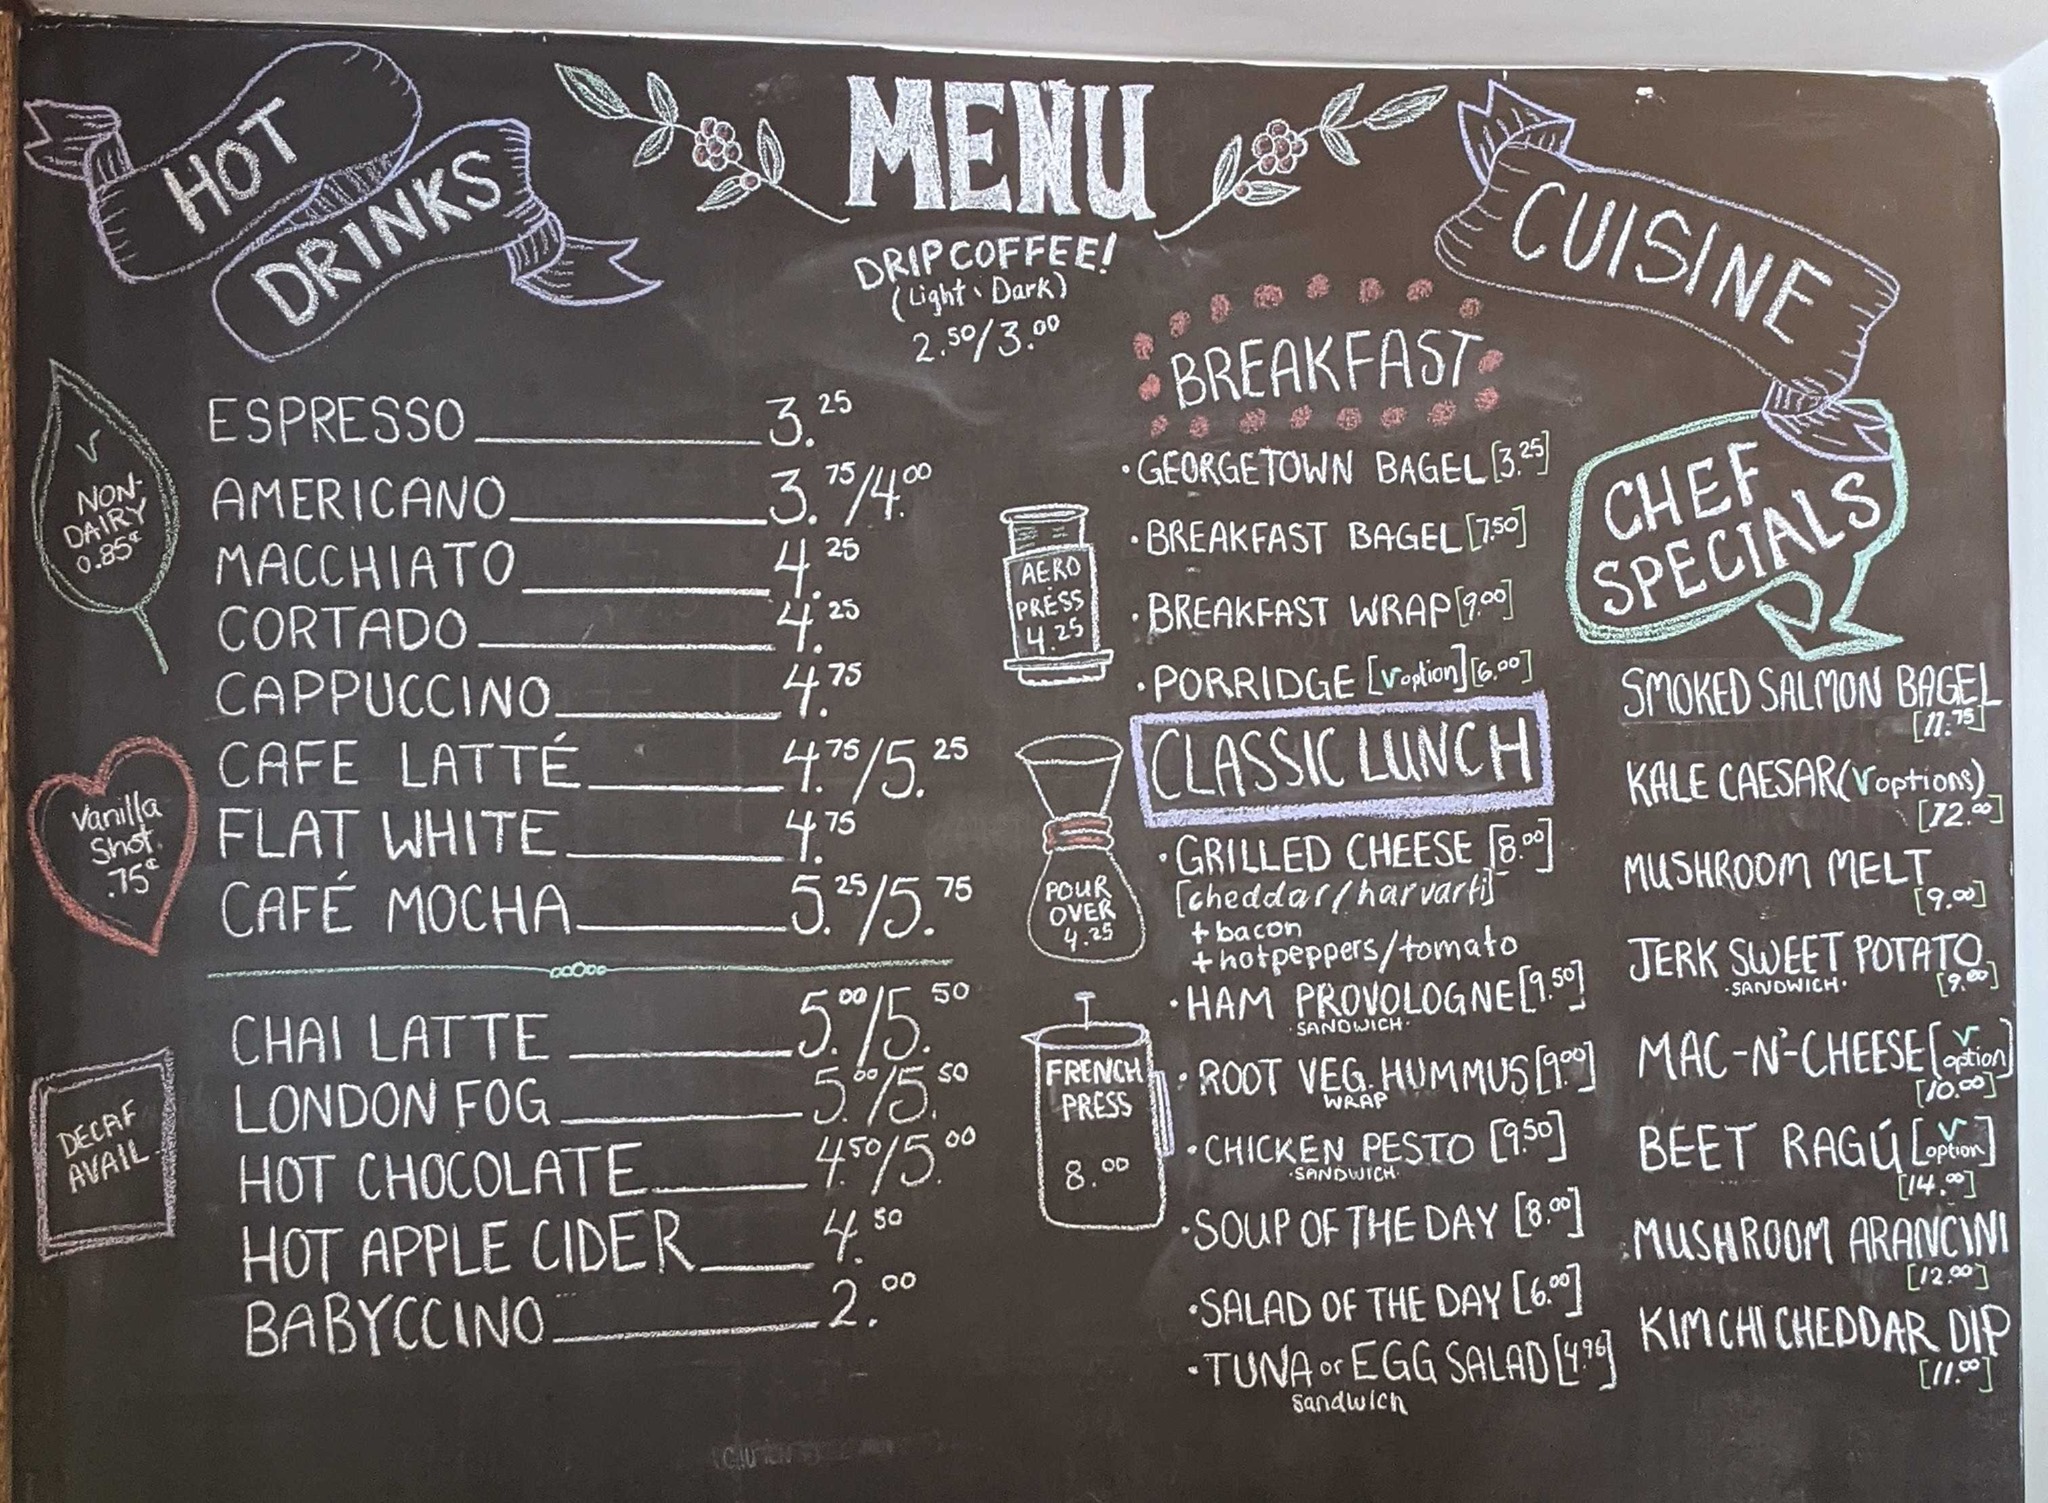 MENU
HOT
DRINKS
DRIP COFFEE!
(Light \ Dark)
2.50/3.00
V
NON-
DAIRY
0.85¢
Vanilla
Shot
.75¢
DECAF
AVAIL.
ESPRESSO 3.25
AMERICANO 3.75/4.00
MACCHIATO 4.25
CORTADO 4.25
CAPPUCCINO 4.75
CAFE LATTÉ 4.75/5.25
FLAT WHITE 4.75
CAFÉ MOCHA 5.25/5.75
CHAI LATTE 5.00/5.50
LONDON FOG 5.00/5.50
HOT CHOCOLATE 4.50/5.00
HOT APPLE CIDER 4.50
BABYCCINO 2.00
AERO
PRESS
4.25
POUR
OVER
4.25
FRENCH
PRESS
8.00
CUISINE
BREAKFAST
· GEORGETOWN BAGEL [3.25]
· BREAKFAST BAGEL [7.50]
· BREAKFAST WRAP [9.00]
· PORRIDGE [V option] [6.00]
CLASSIC LUNCH
· GRILLED CHEESE [8.00]
[cheddar/harvarti]
+ bacon
+ hot peppers/tomato
· HAM PROVOLOGNE [9.50]
· SANDWICH ·
· ROOT VEG. HUMMUS [9.00]
WRAP
· CHICKEN PESTO [9.50]
· SANDWICH ·
· SOUP OF THE DAY [8.00]
· SALAD OF THE DAY [6.00]
· TUNA or EGG SALAD [4.96]
sandwich
CHEF
SPECIALS
SMOKED SALMON BAGEL
[11.75]
KALE CAESAR (V options)
[12.00]
MUSHROOM MELT
[9.00]
JERK SWEET POTATO
· SANDWICH · [9.00]
MAC-N'-CHEESE [V option]
[10.00]
BEET RAGÚ [V option]
[14.00]
MUSHROOM ARANCINI
[12.00]
KIMCHI CHEDDAR DIP
[11.00]